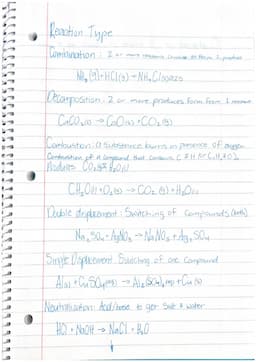 Reaction Type
Combination: 2 or more reactants combine to form 1 product
NH₃(g) + HCl(g) → NH₄Cl
Decomposition: 2 or more produces form from 1 reactant
CaCO₃(s) → CaO(s) + CO₂(g)
Combustion: a substance burns in presence of oxygen
Combustion of a compound that contains C & H or C, H, & O
Produces CO₂(g) & H₂O(l)
O₂(g) → CO₂(g) + H₂O(l)
Double displacement: Switching of compounds (both)
Na₂SO₄ + AgNO₃ → NaNO₃ + Ag₂SO₄
Single Displacement Switching of one Compound
Al(s) + CuSO₄(aq) → Al₂(SO₄)₃(aq) + Cu(s)
Neutralization: Acid/base to get Salt & water
HCl + NaOH → NaCl + H₂O